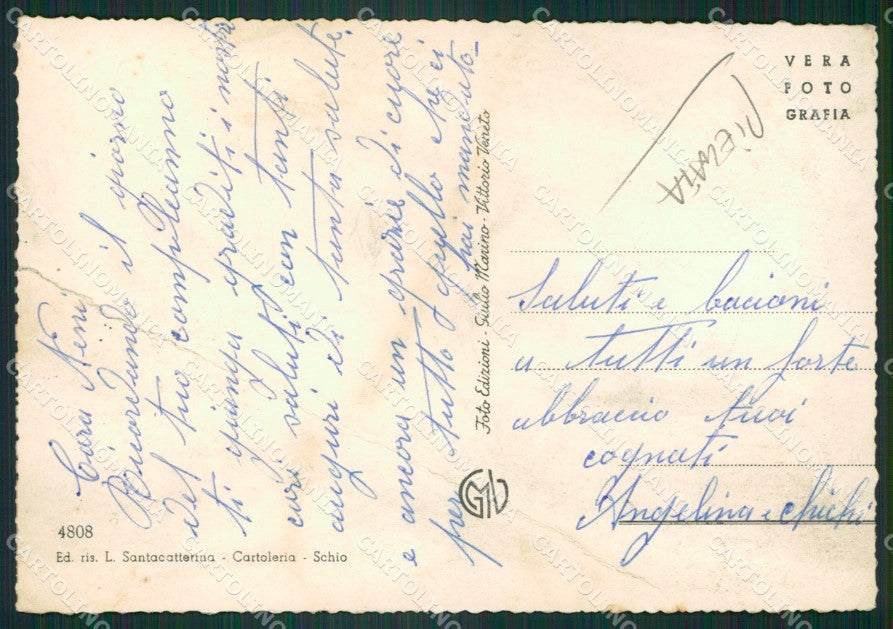 Cara Nini
Ricordando il giorno
del tuo compleanno
ti giunga graditi i nostri
cari saluti con tanti
auguri di tanta salute.
e ancora un grazie di cuore
per tutto quello che ci
hai mandato_
4808
Ed. ris. L. Santacatterina - Cartoleria - Schio
Foto Edizioni - Giulio Marino - Vittorio Veneto
GMV
VERA
FOTO
GRAFIA
PIEGATA
Saluti e bacioni
a tutti un forte
abbraccio tuoi
cognati
Angelina e Chichi
CARTOLINOMANIA